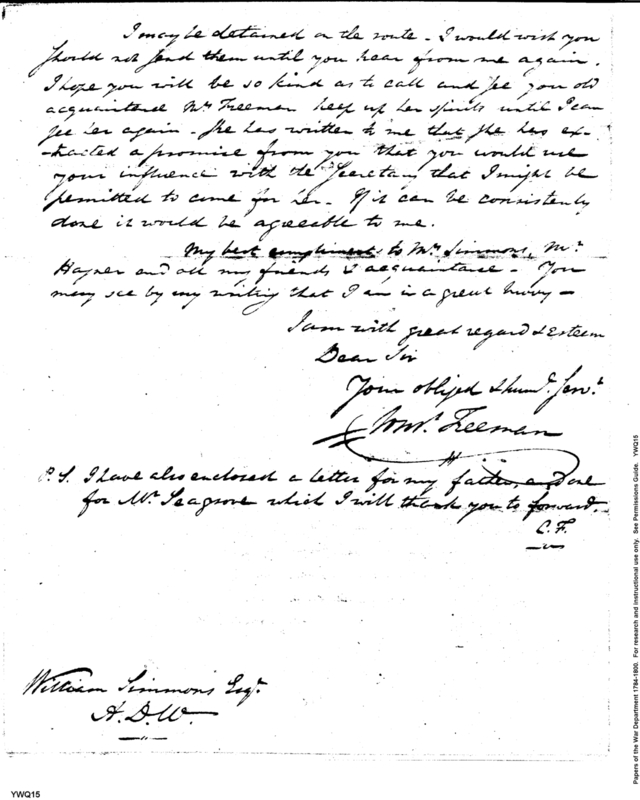 I may be detained on the route - I would wish you
should not send them until you hear from me again.
I hope you will be so kind as to call and see you old
acquaintance Mrs Freeman keep up her spirits until I can
see her again - She has written to me that she has ex-
-tracted a promise from you that you would use
your influence with the Secretary that I might be
permitted to come for her. If it can be consistently
done it would be agreeable to me.
My best compliments to Mrs Simmons, Mr
Hagner and all my friends & acquaintance - You
may see by my writing that I am in a great hurry -
I am with great regard & Esteem
Dear Sir
Your obliged & humb. Servt
Freeman
P.S. I have also enclosed a letter for my father, and one
for Mr Seagrove which I will thank you to forward.
C.F.
William Simmons Esqr
A.D.W.
YWQ15
Papers of the War Department 1784-1800. For research and instructional use only. See Permissions Guide. YWQ15